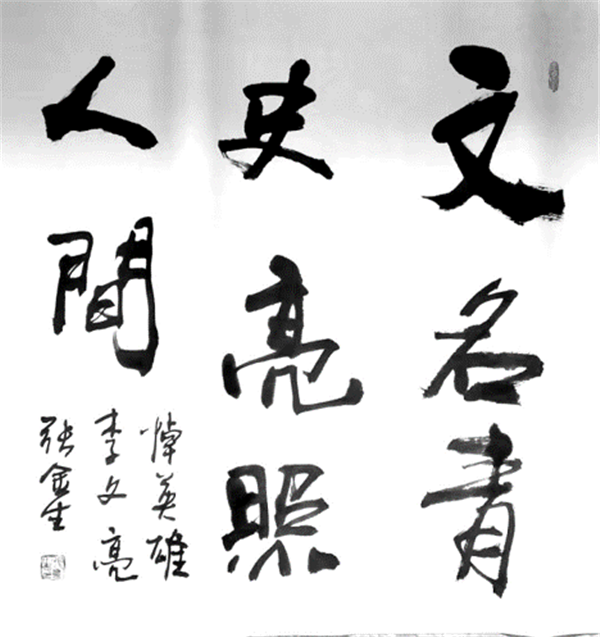 文名青
史亮照
人間
悼英雄
李文亮
张金生